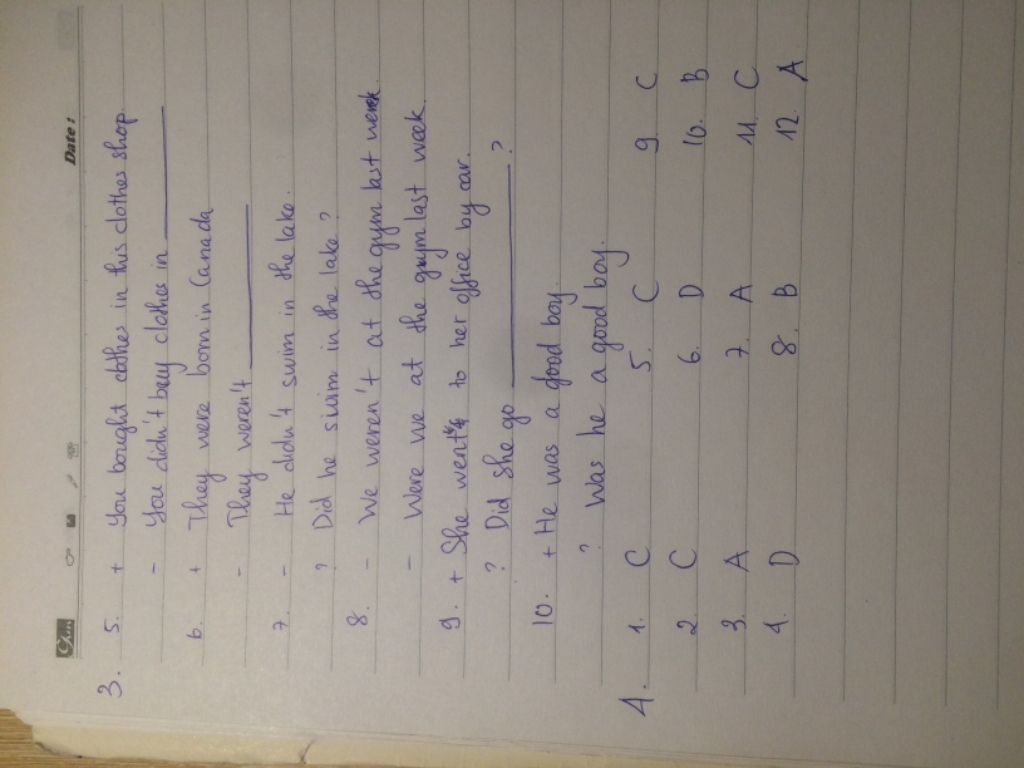 Date:
3. 5. + You bought clothes in this clothes shop.
- You didn't buy clothes in ________
6. + They were born in Canada
- They weren't ________
7. - He didn't swim in the lake.
? Did he swim in the lake?
8. - We weren't at the gym last week.
- Were we at the gym last week
9. + She went to her office by car.
? Did she go ________?
10. + He was a good boy.
? Was he a good boy.
4. 1. C 5. C 9 C
2. C 6. D 10. B
3. A 7. A 11. C
4. D 8. B 12. A